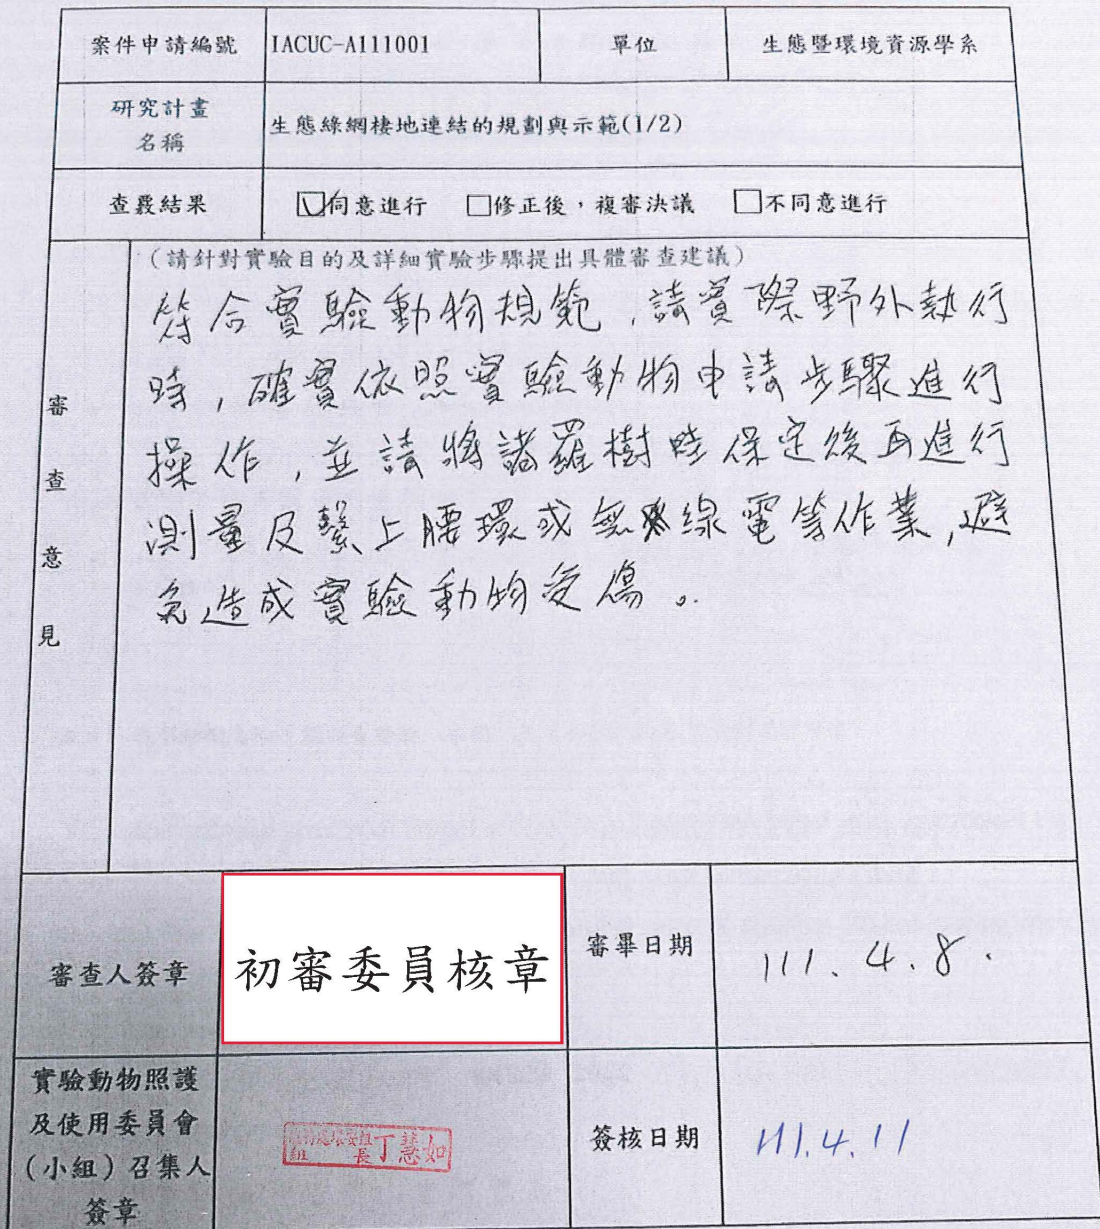 案件申請編號 IACUC-A111001 單位 生態暨環境資源學系
研究計畫
名稱
生態綠網棲地連結的規劃與示範(1/2)
查覈結果 ☑同意進行 □修正後，複審決議 □不同意進行
審查意見
(請針對實驗目的及詳細實驗步驟提出具體審查建議)
符合實驗動物規範，請實際野外執行
時，確實依照實驗動物申請步驟進行
操作，並請將諸羅樹蛙保定後再進行
測量及繫上腰環或無線電等作業，避
免造成實驗動物受傷。
審查人簽章 初審委員核章 審畢日期 111.4.8.
實驗動物照護
及使用委員會
(小組)召集人
簽章
組長丁慧如
簽核日期 111.4.11